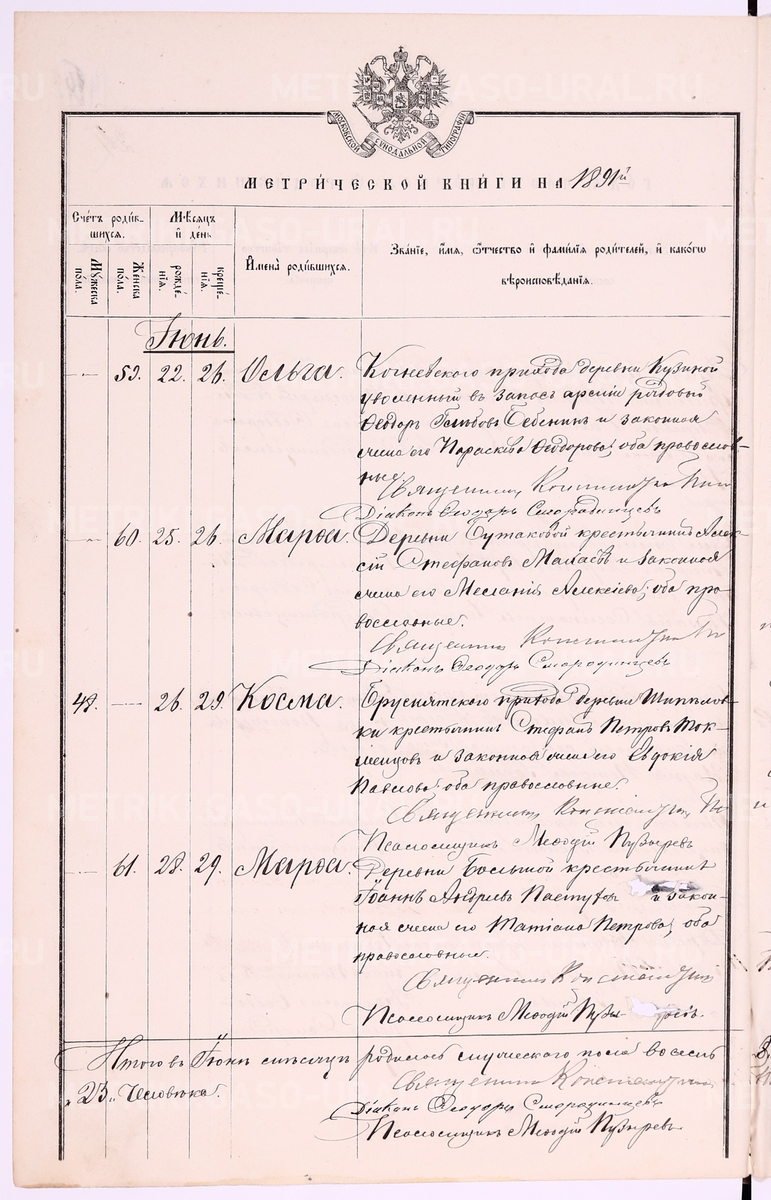 МОСКОВСКОЙ СѴНОДАЛЬНОЙ ТИПОГРАФІИ
МЕТРИ́ЧЕСКОЙ КНИ́ГИ НА 1891й
Сче́тъ роди́вшихся.
Мѣ́сяцъ и҆ де́нь
И҆мена̀ роди́вшихся.
Зва́нїе, и҆́мя, ѻ҆́тчество и҆ фами́лїя роди́телей, и҆ како́гѡ
вѣроисповѣ́данїя.
Мꙋ́жеска по́ла.
Же́нска по́ла.
рожде́нїя.
креще́нїя.
Іюнь.
59. 22. 26. Ольга. Кочневского прихода деревни Кузиной
уволенный въ запасъ арміи рядовый
Ѳеодоръ Бебенинъ и законная
жена его Параскева Ѳеодорова; оба православ-
ные.
Священникъ Константинъ
Діаконъ Ѳеодоръ Смородинцевъ
60. 25. 26. Марѳа. Деревни Бутаковой крестьянинъ Алек-
сій Стефановъ и законная
жена его Меланія Алексіева; оба пра-
вославные.
Священникъ Константинъ
Діаконъ Ѳеодоръ Смородинцевъ
48. 26. 29. Косма. Бруснятского прихода деревни Шипелов-
ки крестьянинъ Стефанъ Петровъ Ток-
менцовъ и законная жена его Евдокія
Павлова; оба православные.
Священникъ Константинъ
Псаломщикъ Меѳодій Пузыревъ
61. 28. 29. Марѳа. Деревни Большой крестьянинъ
Іоаннъ Андреевъ Пастухов и закон-
ная жена его Татіана Петрова; оба
православные.
Священникъ Константинъ
Псаломщикъ Меѳодій Пузыревъ.
Итого въ Іюнѣ мѣсяцѣ родилось мужеского пола восемь
"23" человѣка.
Священникъ Константинъ
Діаконъ Ѳеодоръ Смородинцевъ
Псаломщикъ Меѳодій Пузыревъ